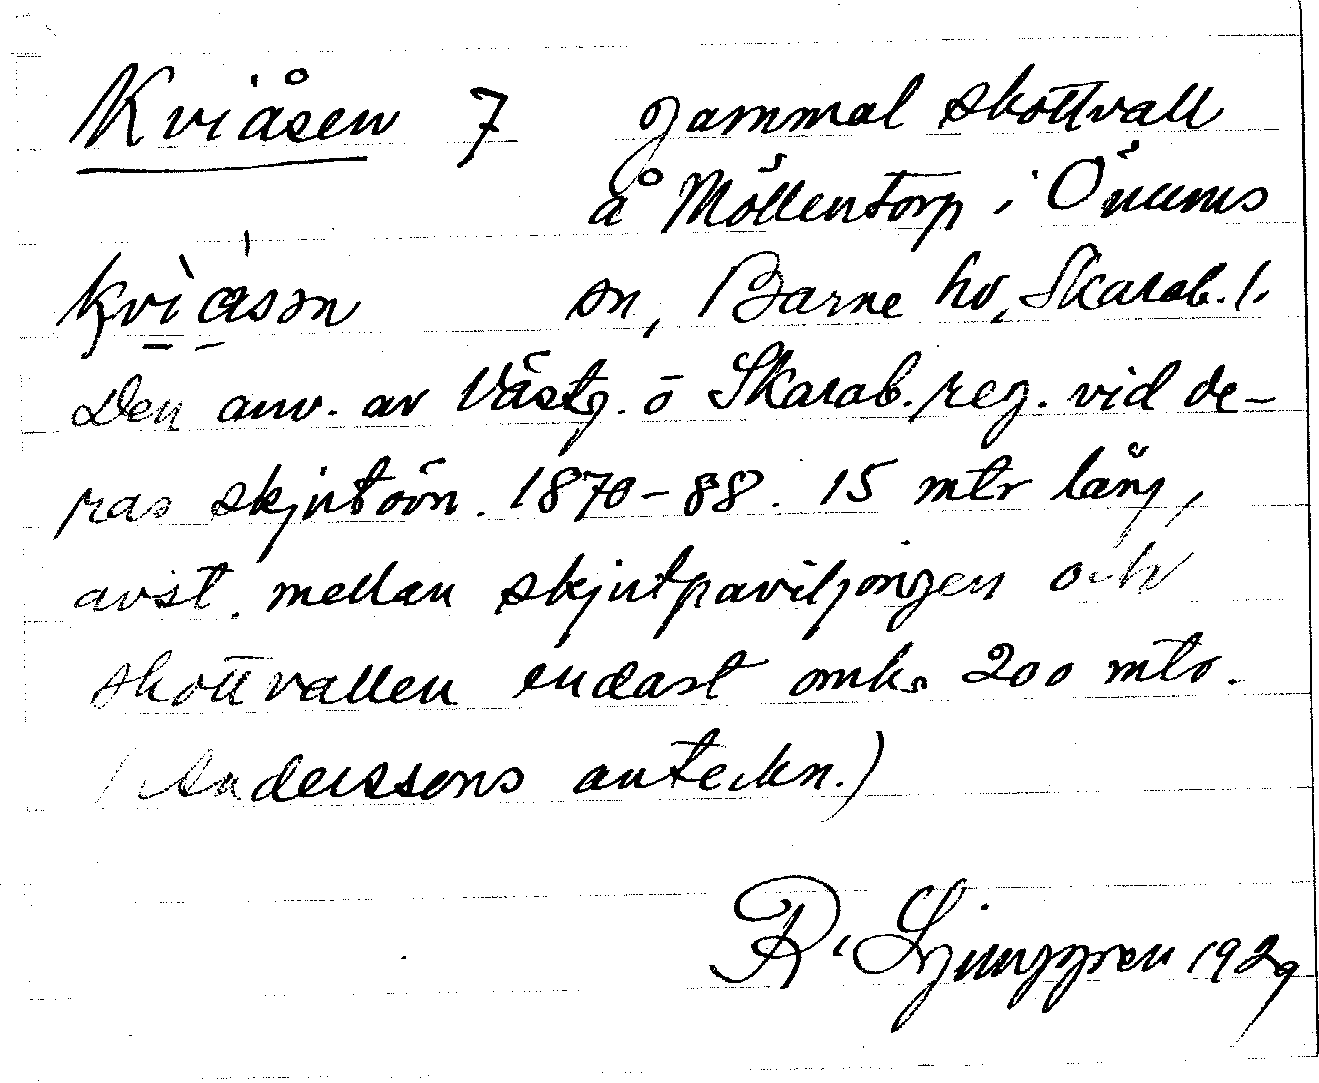 Kviåsen 7 gammal skottvall
å Möllentorp i Önums
kviåsσn sn, Barne hd, Skarab. l.
Den anv. av Västg. o Skarab. reg. vid de-
ras skjutövn. 1870-88. 15 mtr lång,
avst. mellan skjutpaviljongen och
skottvallen endast omkr 200 mtr.
(Anderssons anteckn.)
R. Ljunggren 1929